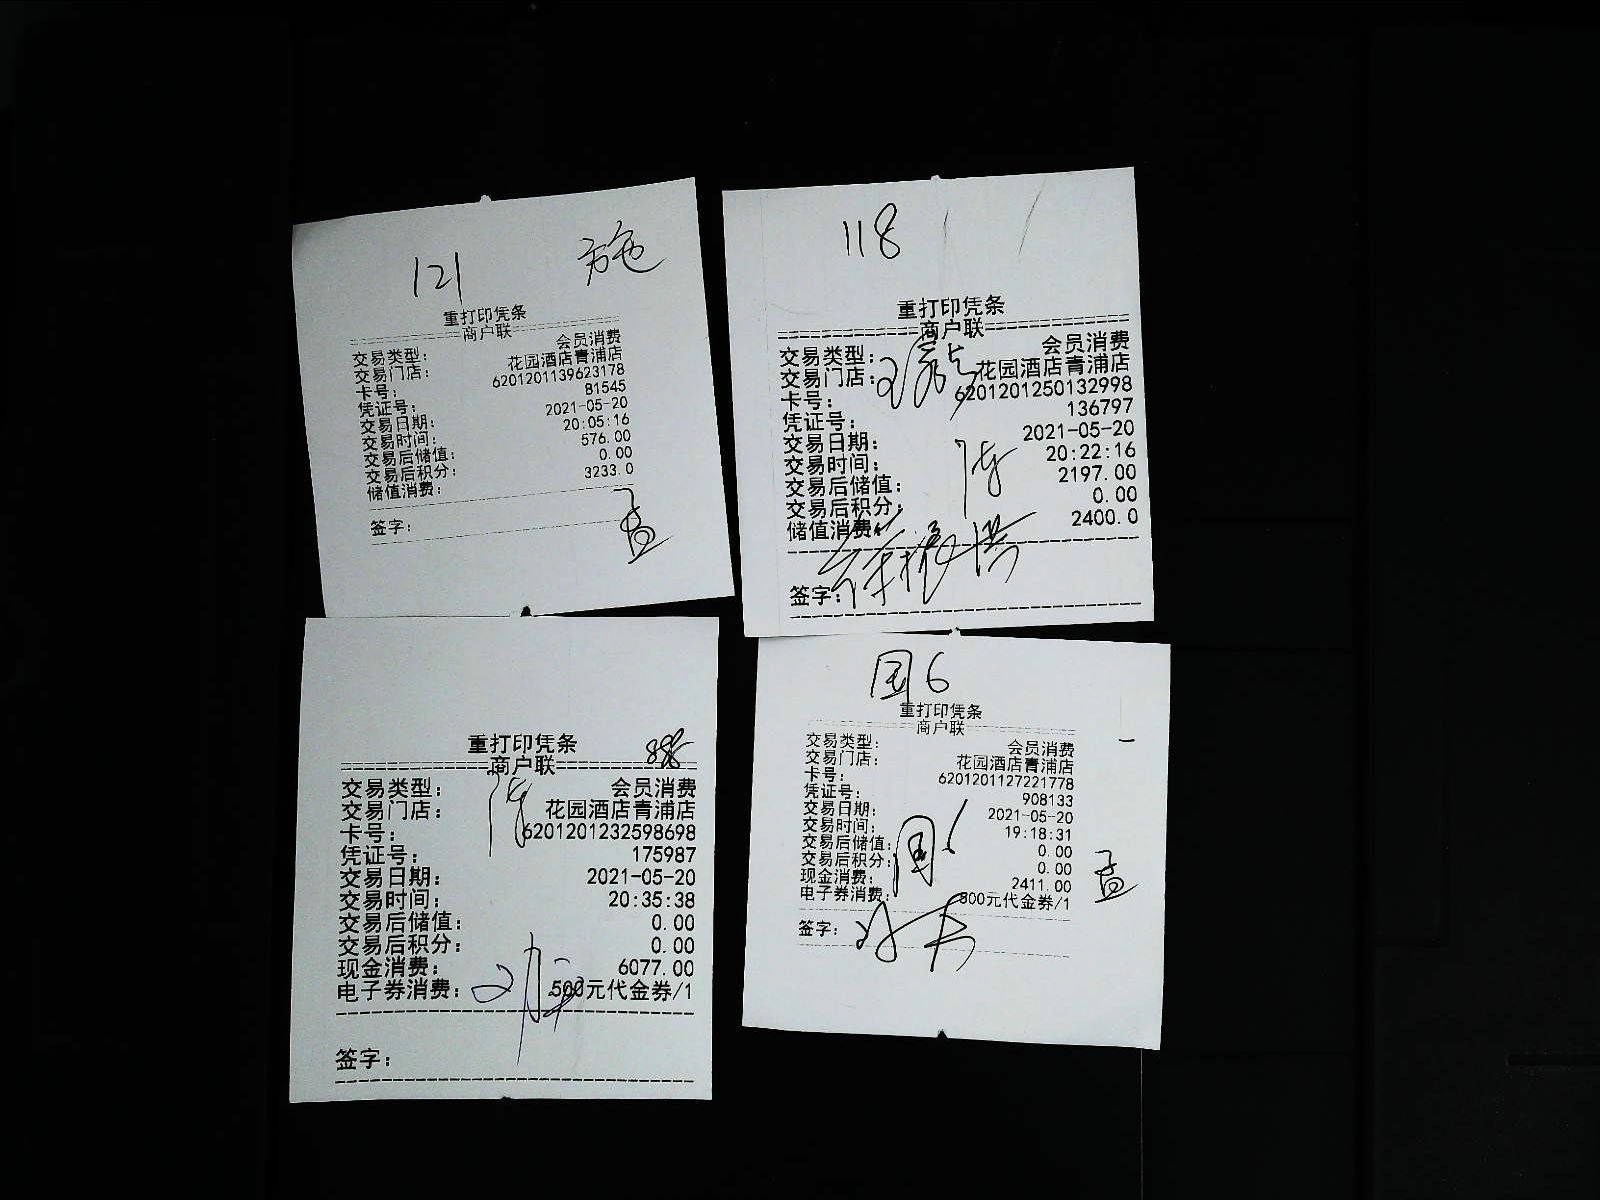 121 施
重打印凭条
商户联
交易类型: 会员消费
交易门店: 花园酒店青浦店
卡号: 6201201139623178
凭证号: 81545
交易日期: 2021-05-20
交易时间: 20:05:16
交易后储值: 576.00
交易后积分: 0.00
储值消费: 3233.0
签字:
孟
118
重打印凭条
商户联
交易类型: 会员消费
交易门店: 花园酒店青浦店
卡号: 6201201250132998
凭证号: 136797
交易日期: 2021-05-20
交易时间: 20:22:16
交易后储值: 2197.00
交易后积分: 0.00
储值消费: 2400.0
签字:
重打印凭条
商户联
交易类型: 会员消费
交易门店: 花园酒店青浦店
卡号: 6201201232598698
凭证号: 175987
交易日期: 2021-05-20
交易时间: 20:35:38
交易后储值: 0.00
交易后积分: 0.00
现金消费: 6077.00
电子券消费: 500元代金券/1
签字:
国6
重打印凭条
商户联
交易类型: 会员消费
交易门店: 花园酒店青浦店
卡号: 6201201127221778
凭证号: 908133
交易日期: 2021-05-20
交易时间: 19:18:31
交易后储值: 0.00
交易后积分: 0.00
现金消费: 2411.00
电子券消费: 500元代金券/1
孟
签字: